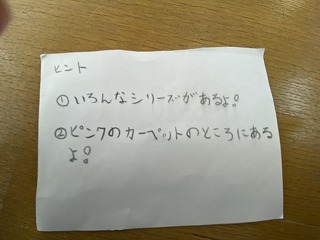 ヒント
①いろんなシリーズがあるよ!
②ピンクのカーペットのところにある
よ!